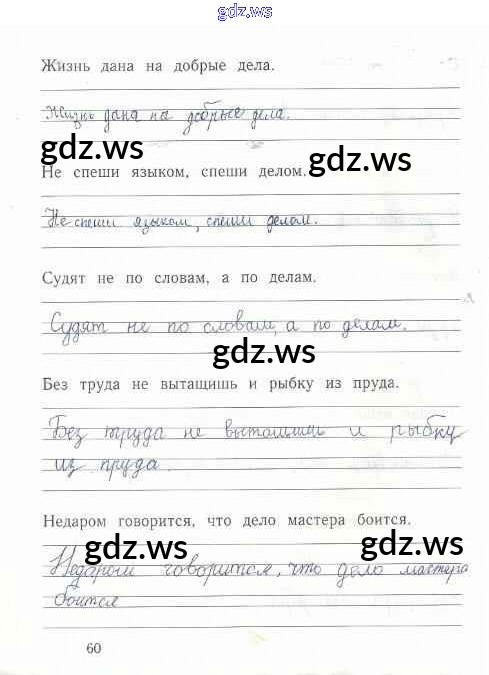 gdz.ws
Жизнь дана на добрые дела.
Жизнь дана на добрые дела.
gdz.ws
gdz.ws
Не спеши языком, спеши делом.
Не спеши языком, спеши делом.
Судят не по словам, а по делам.
Судят не по словам, а по делам.
gdz.ws
Без труда не вытащишь и рыбку из пруда.
Без труда не вытащишь и рыбку
из пруда.
Недаром говорится, что дело мастера боится.
gdz.ws
gdz.ws
Недаром говорится, что дело мастера
боится
60